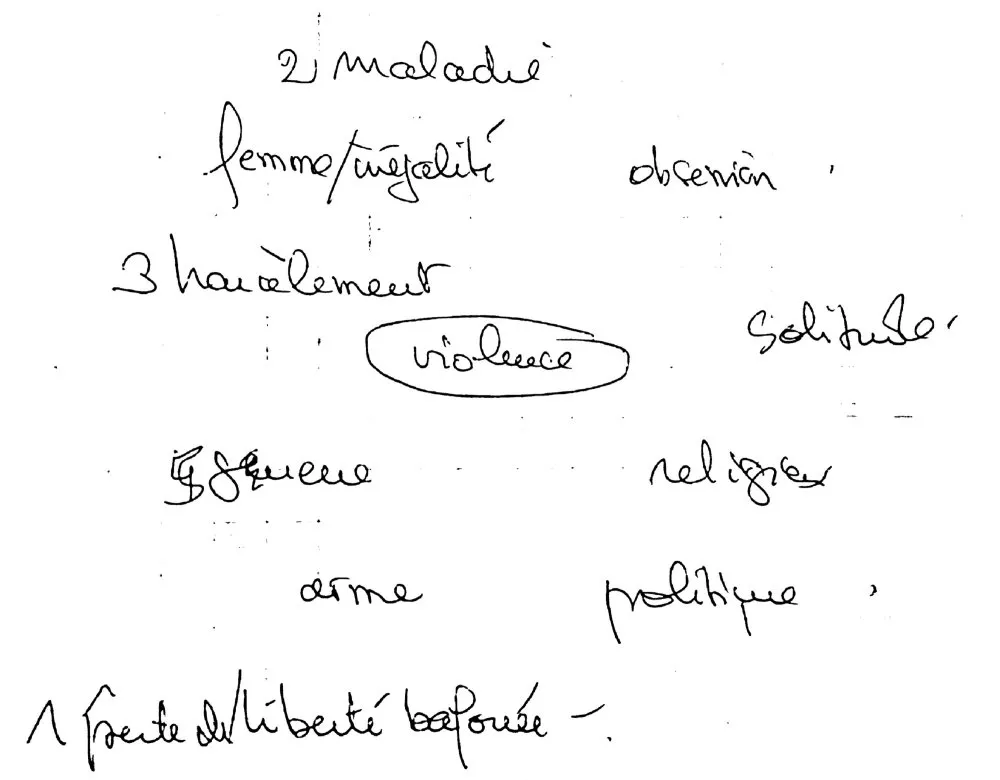 2 maladie
femme/inégalité obsession
3 harcèlement
solitude
violence
guerre religieux
arme politique
1 perte de/liberté bafouée -.